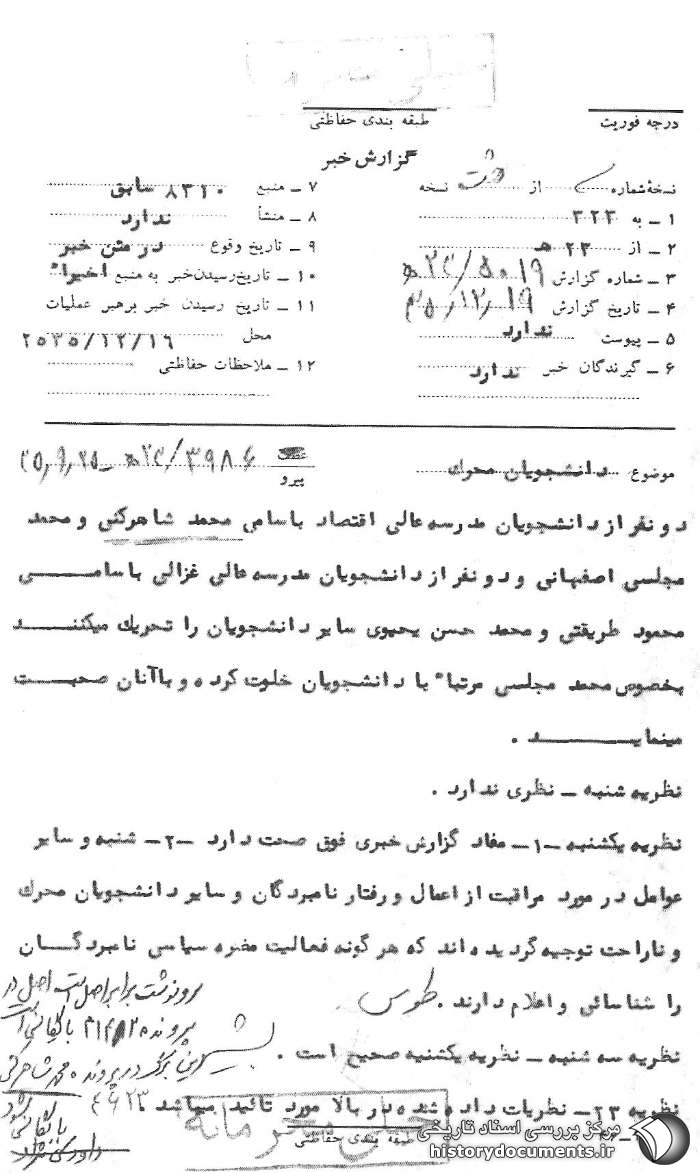 خیلی محرمانه
درجه فوریت
طبقه بندی حفاظتی
گزارش خبر
نسخهٔ شماره از هشت نسخه
۱ ـ به ۳۲۳
۲ ـ از ۲۳ هـ
۳ ـ شماره گزارش ۵۰۱۹/ ۲۳هـ
۴ ـ تاریخ گزارش ۳۵/۱۲/۱۹
۵ ـ پیوست ندارد
۶ ـ گیرندگان خبر ندارد
۷ ـ منبع ۸۳۱۰ سابق
۸ ـ منشأ ندارد
۹ ـ تاریخ وقوع در متن خبر
۱۰ ـ تاریخ رسیدن خبر به منبع اخیراً
۱۱ ـ تاریخ رسیدن خبر برهبر عملیات
محل ۲۵۳۵/۱۲/۱۶
۱۲ ـ ملاحظات حفاظتی
موضوع دانشجویان محرک
پیرو ۳۹۸۶/ ۲۳هـ ـ ۳۵٫۹٫۲۵
دو نفر از دانشجویان مدرسه عالی اقتصاد باسامی محمد شاهرکنی و محمد
مجلسی اصفهانی و دو نفر از دانشجویان مدرسه عالی غزالی باسامــــی
محمود طریقتی و محمد حسن یحیوی سایر دانشجویان را تحریک میکننــد
بخصوص محمد مجلسی مرتباً با دانشجویان خلوت کرده و باآنان صحبــت
مینمایـــــد .
نظریه شنبه ـ نظری ندارد .
نظریه یکشنبه ـ۱ـ مفاد گزارش خبری فوق صحت دارد ـ۲ـ شنبه و سایر
عوامل در مورد مراقبت از اعمال و رفتار نامبردگان و سایر دانشجویان محرک
و ناراحت توجیه گردیده اند که هر گونه فعالیت مضره سیاسی نامبردگــان
را شناسائی و اعلام دارند . طوسی
نظریه سه شنبه ـ نظریه یکشنبه صحیح است .
نظریه ۲۳ـ نظریات داده شده در بالا مورد تائید میباشد .
رونوشت برابر اصل است اصل در
پرونده بایگانی است
این برگ در پرونده محمد شاهرکنی
۴۶۲۳
بایگانی شود
طبقه بندی حفاظتی
خیلی محرمانه
مرکز بررسی اسناد تاریخی
historydocuments.ir